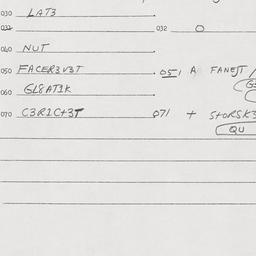 030 LAT3
032 032 O
040 NUT
050 FACER3V3T 051 A FANEJT /
060 GL8AT1K
070 C3R1C+3T 071 + STORSK3
QU